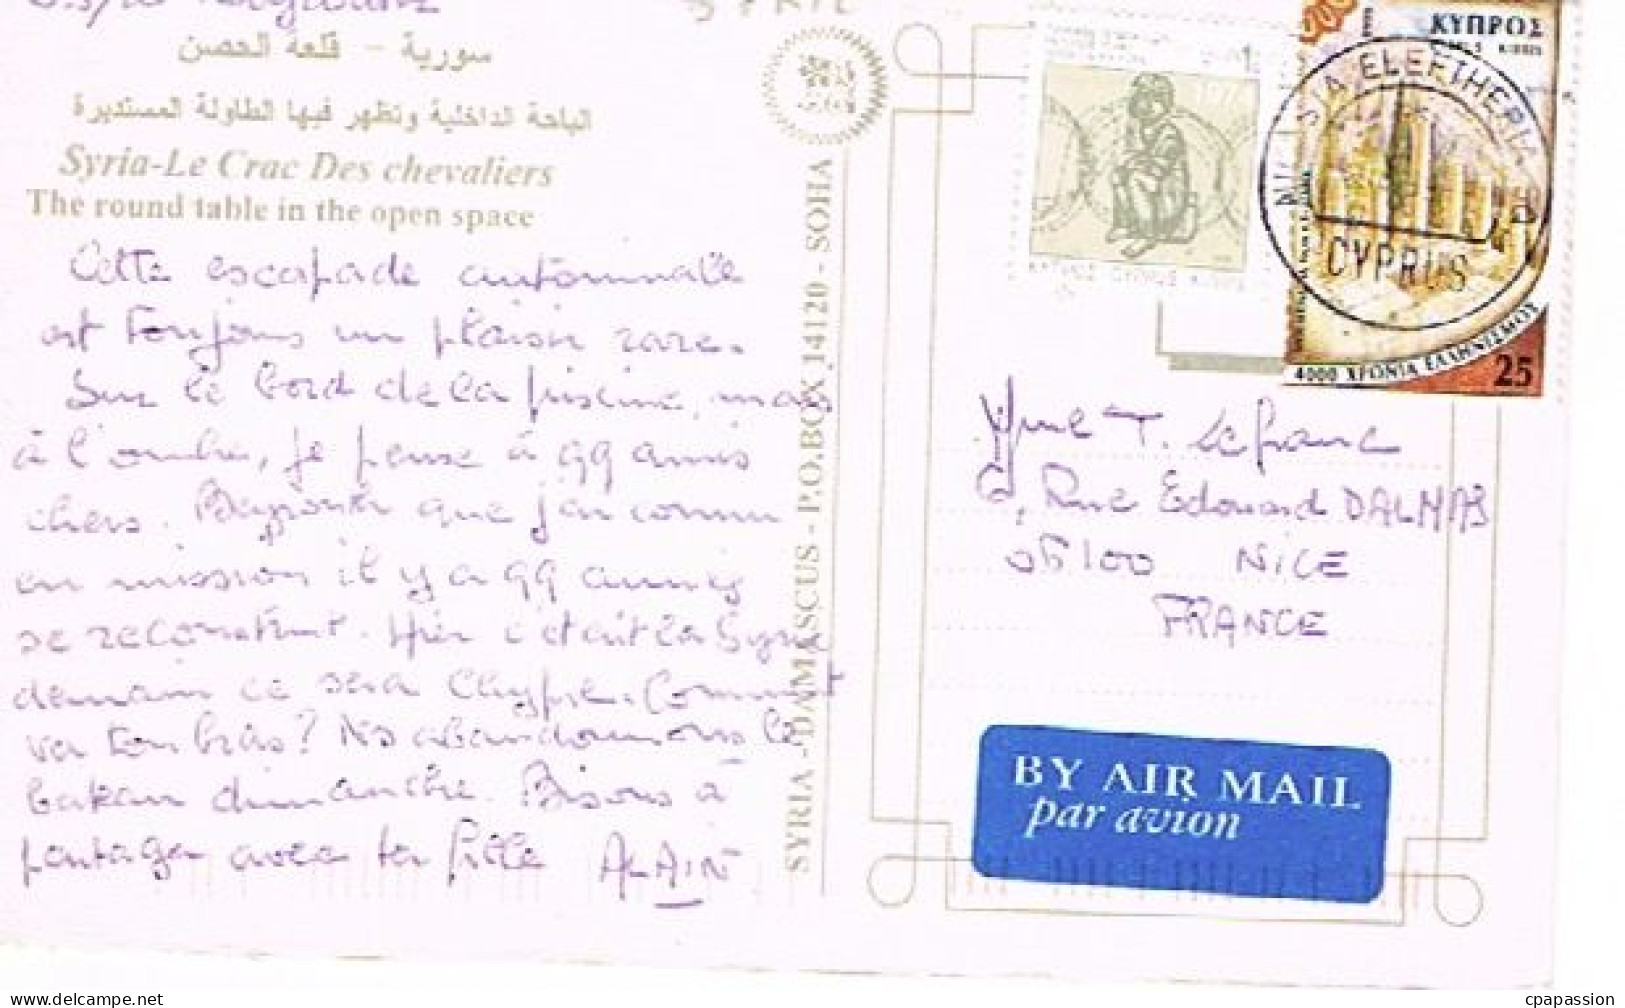 سورية - قلعة الحصن
الباحة الداخلية وتظهر فيها الطاولة المستديرة
Syria-Le Crac Des chevaliers
The round table in the open space
Cette escapade automnale
est toujours un plaisir rare.
Sur le bord de la piscine, mais
à l'ombre, je pense à qq amis
chers. Beyrouth que j'ai connu
en mission il y a qq années
se reconstruit. Hier c'était la Syrie
demain ce sera Chypre. Comment
va ton bras? N'abandonnons le
dimanche. Bisous à
partager avec ta fille ALAIN
SYRIA - DAMASCUS - P.O.BOX 14120 - SOHA
1
1974
ΚΥΠΡΟΣ CYPRUS KIBRIS
ΚΥΠΡΟΣ
KIBRIS
ELEFTHERIA
CYPRUS
4000 ΧΡΟΝΙΑ ΕΛΛΗΝΙΣΜΟΥ
25
Mme T. Lefranc
6, Rue Edouard DALMAS
06100 NICE
FRANCE
BY AIR MAIL
par avion
www.delcampe.net
cpapassion